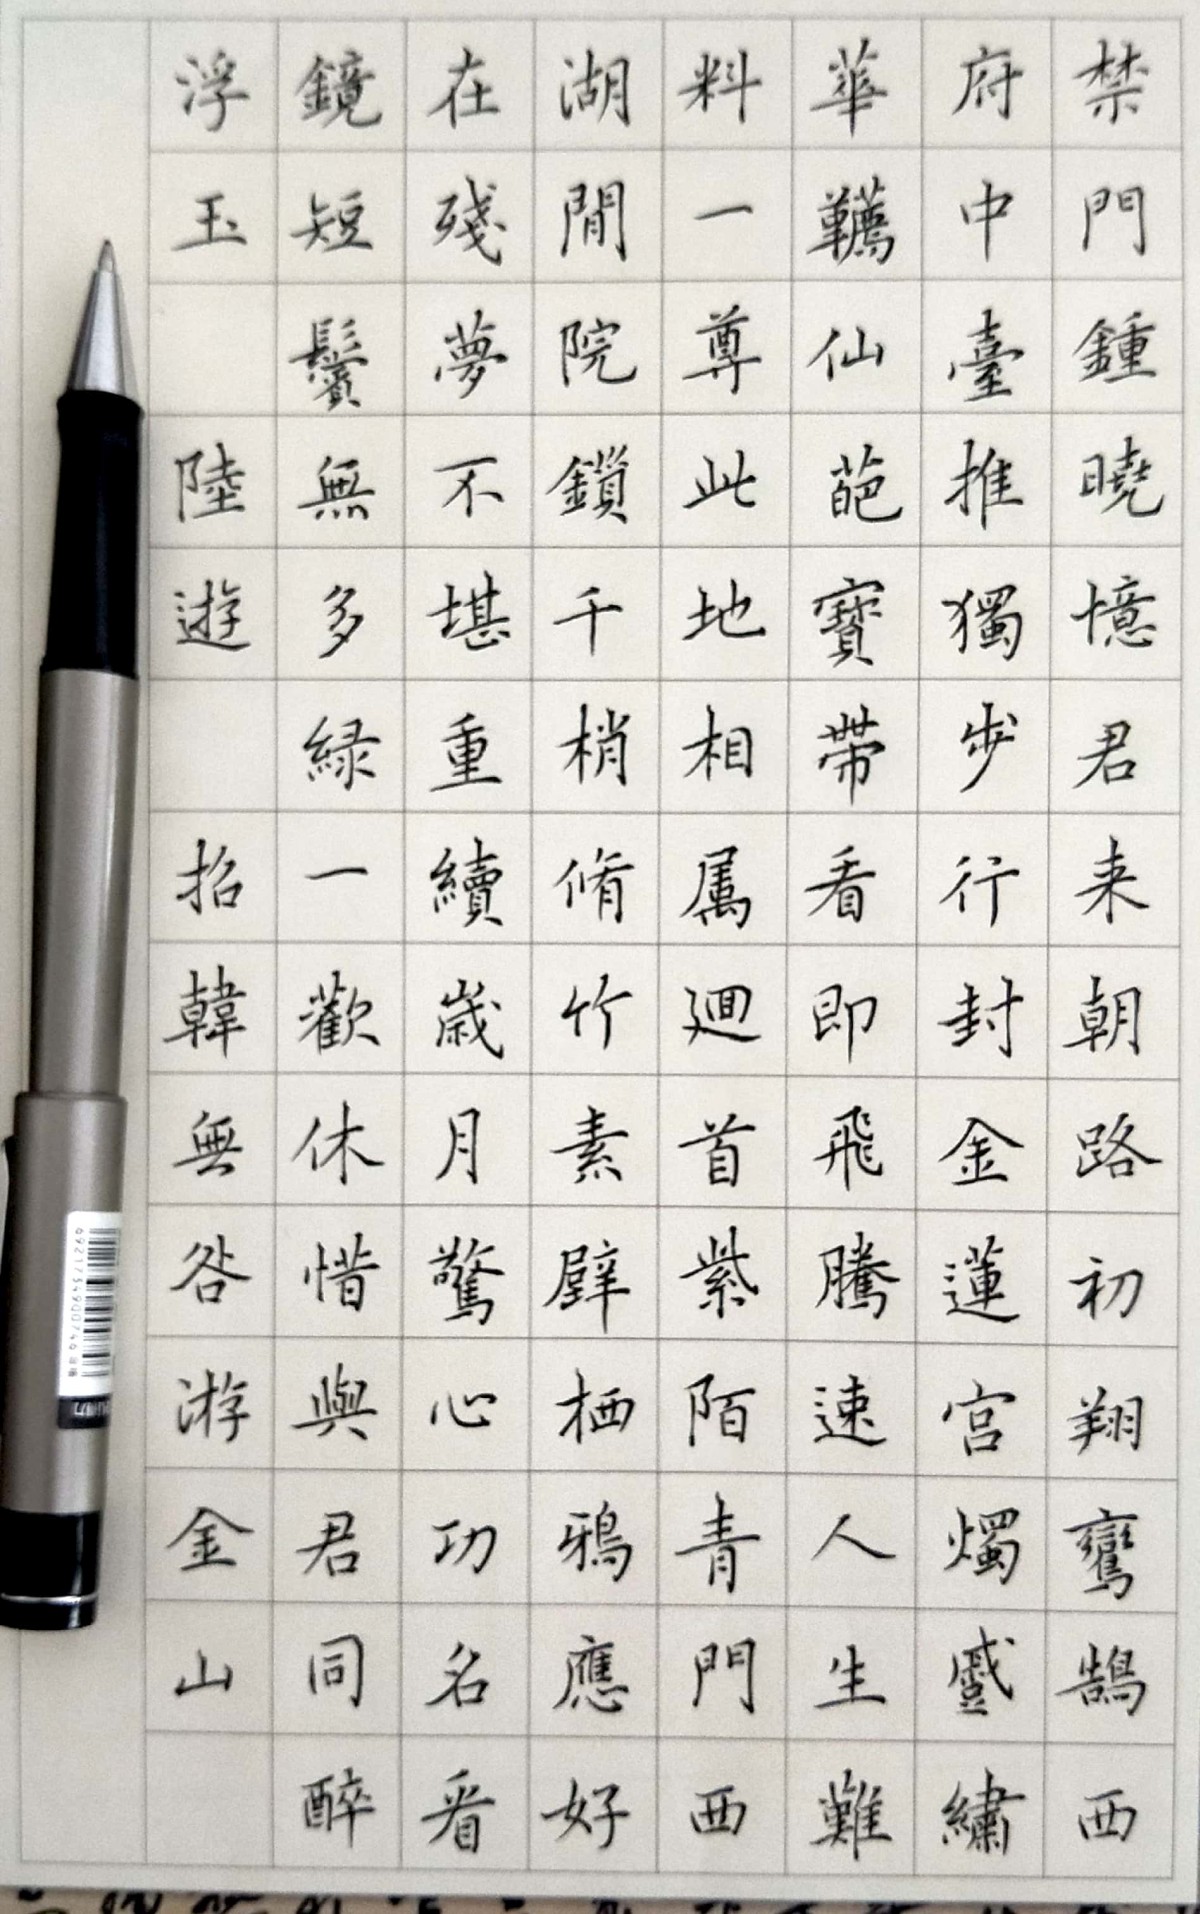 禁門鍾曉憶君来朝路初翔鸞鵠西
府中臺推獨步行封金蓮宮燭蹙繡
華韉仙葩寶帶看即飛騰速人生難
料一尊此地相属廻首紫陌青門西
湖閒院鎖千梢脩竹素壁栖鴉應好
在殘夢不堪重續歲月驚心功名看
鏡短鬢無多緑一歡休惜與君同醉
浮玉 陸遊 招韓無咎游金山